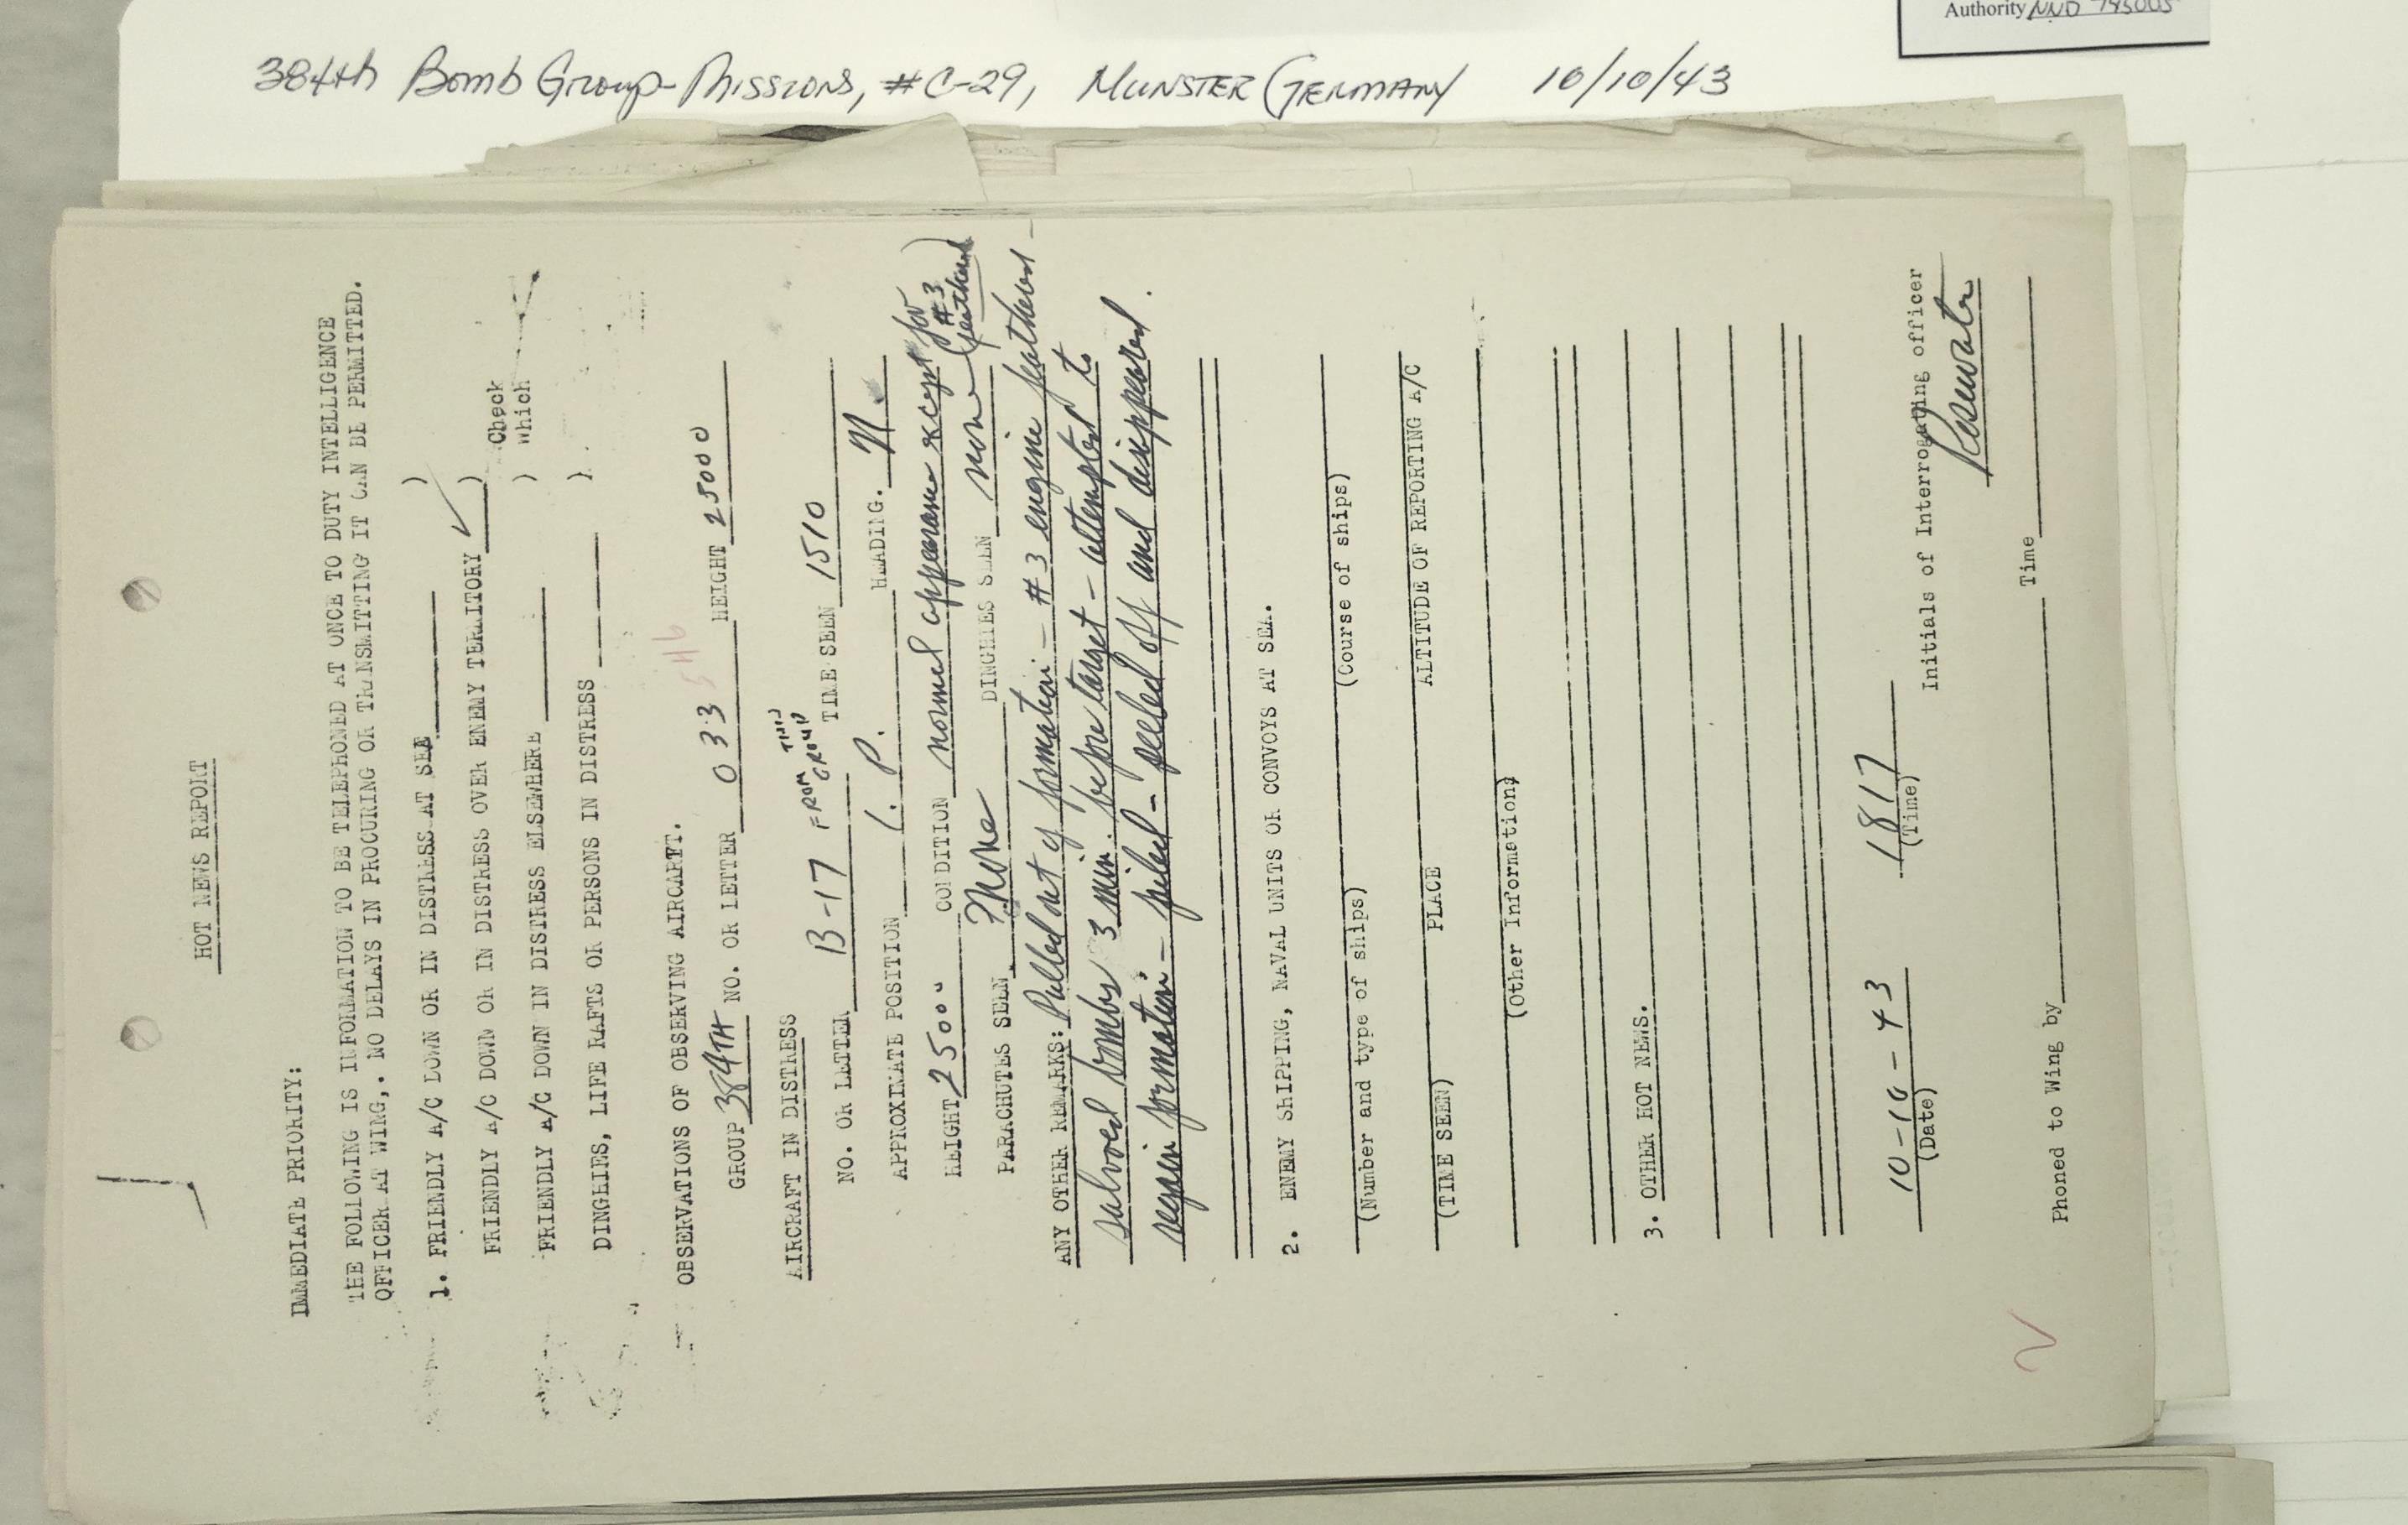 Authority NND 745005
384th Bomb Group-Missions, #C-29, Munster Germany 10/10/43
HOT NEWS REPORT
IMMEDIATE PRIORITY:
THE FOLLOWING IS INFORMATION TO BE TELEPHONED AT ONCE TO DUTY INTELLIGENCE
OFFICER AT WING,. NO DELAYS IN PROCURING OR TRANSMITTING IT CAN BE PERMITTED.
1. FRIENDLY A/C DOWN OR IN DISTRESS AT SEA )
FRIENDLY A/C DOWN OR IN DISTRESS OVER ENEMY TERRITORY ✓ ) Check
FRIENDLY A/C DOWN IN DISTRESS ELSEWHERE ) which
DINGHIES, LIFE RAFTS OR PERSONS IN DISTRESS ).
546
OBSERVATIONS OF OBSERVING AIRCARFT.
GROUP 384TH NO. OR LETTER 033 HEIGHT 25000
AIRCRAFT IN DISTRESS
NO. OR LETTER B-17 FROM THIS GROUP TIME SEEN 1510
APPROXIMATE POSITION I. P. HEADING. N.
HEIGHT 25000 CONDITION normal appearance except for #3 feathered)
PARACHUTES SEEN. None DINGHIES SEEN none
ANY OTHER REMARKS: Pulled out of formation - #3 engine feathered -
salvoed bombs 3 min. before target - attempted to
regain formation - failed - peeled off and disappeared.
2. ENEMY SHIPPING, NAVAL UNITS OR CONVOYS AT SEA.
(Number and type of ships) (Course of ships)
(TIME SEEN) PLACE ALTITUDE OF REPORTING A/C
(Other Information)
3. OTHER HOT NEWS.
10-10-43 1817
(Date) (Time) Initials of Interrogating officer
Rosewater
Phoned to Wing by Time